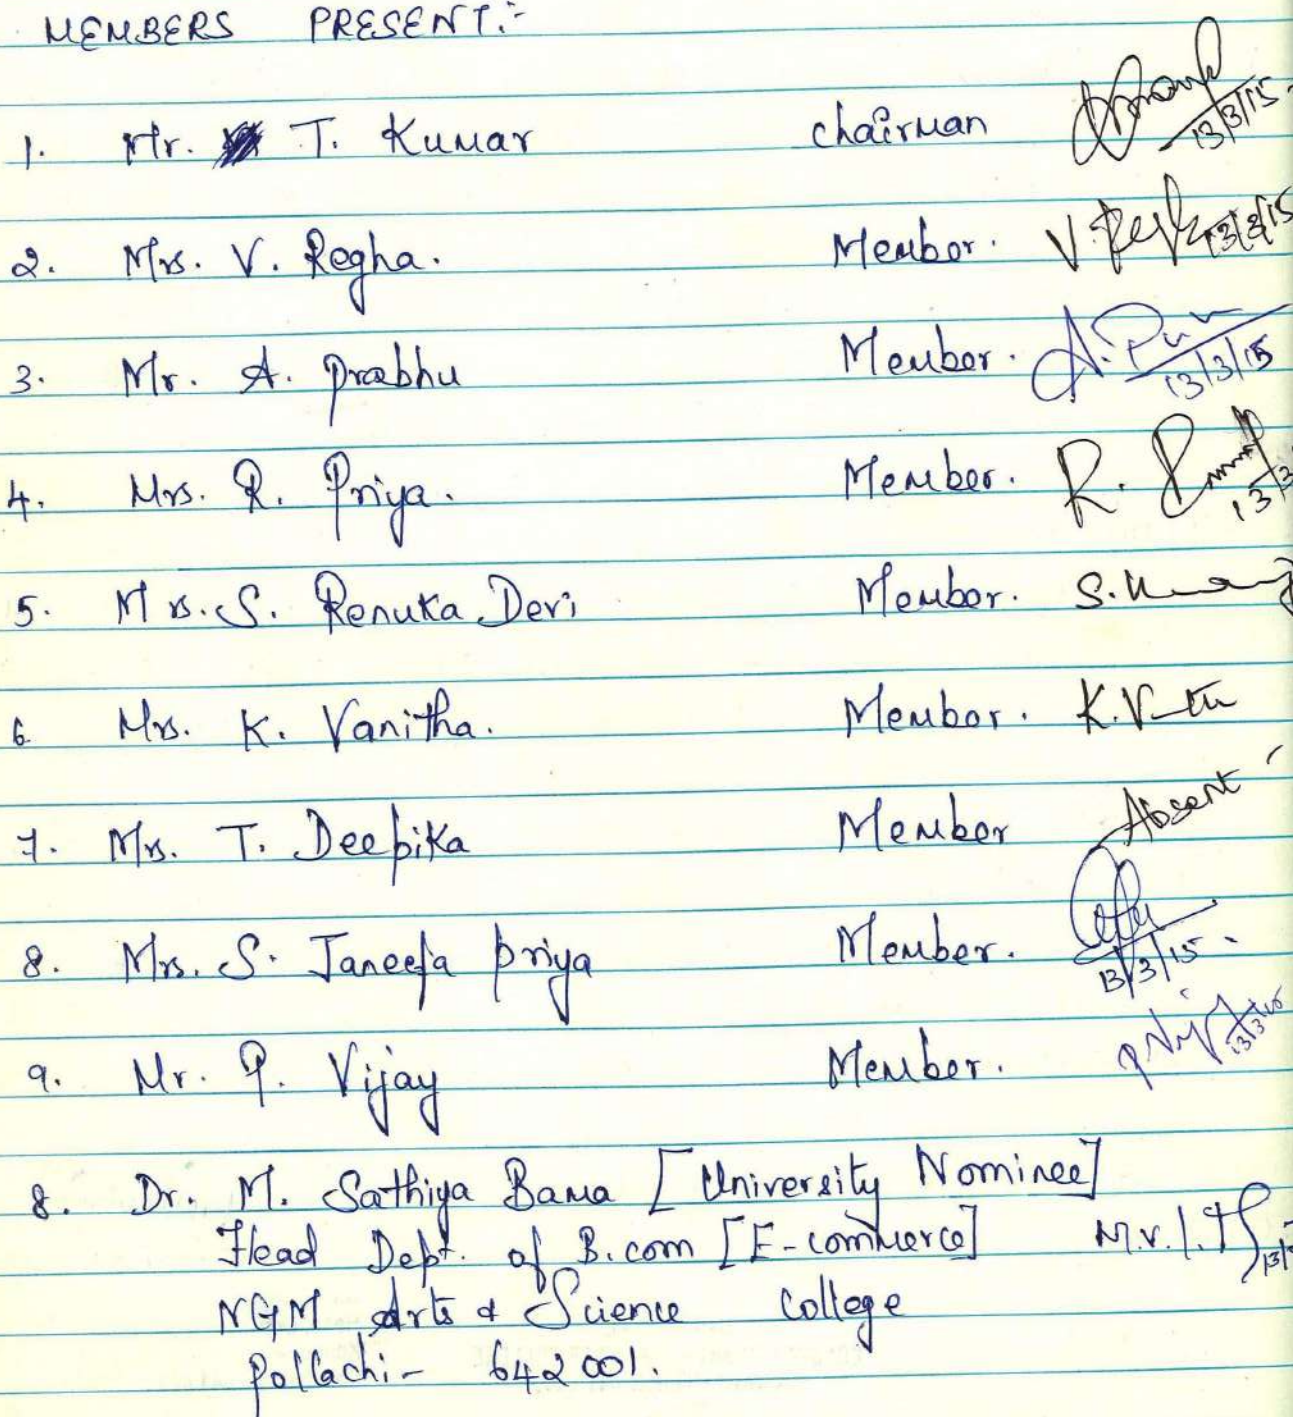 MEMBERS PRESENT:-
1. Mr. T. Kumar Chairman 13/3/15
2. Mrs. V. Regha. Member. 13/3/15
3. Mr. A. Prabhu Member. 13/3/15
4. Mrs. R. Priya. Member. R. 13/3
5. Mrs. S. Renuka Devi Member. S.
6. Mrs. K. Vanitha. Member. K.
7. Mrs. T. Deepika Member Absent
8. Mrs. S. Janeefa priya Member. 13/3/15
9. Mr. P. Vijay Member. 13/3/15
8. Dr. M. Sathiya Bama [University Nominee]
Head Dept. of B.com [E-commerce]
NGM Arts & Science College
Pollachi- 642 001.